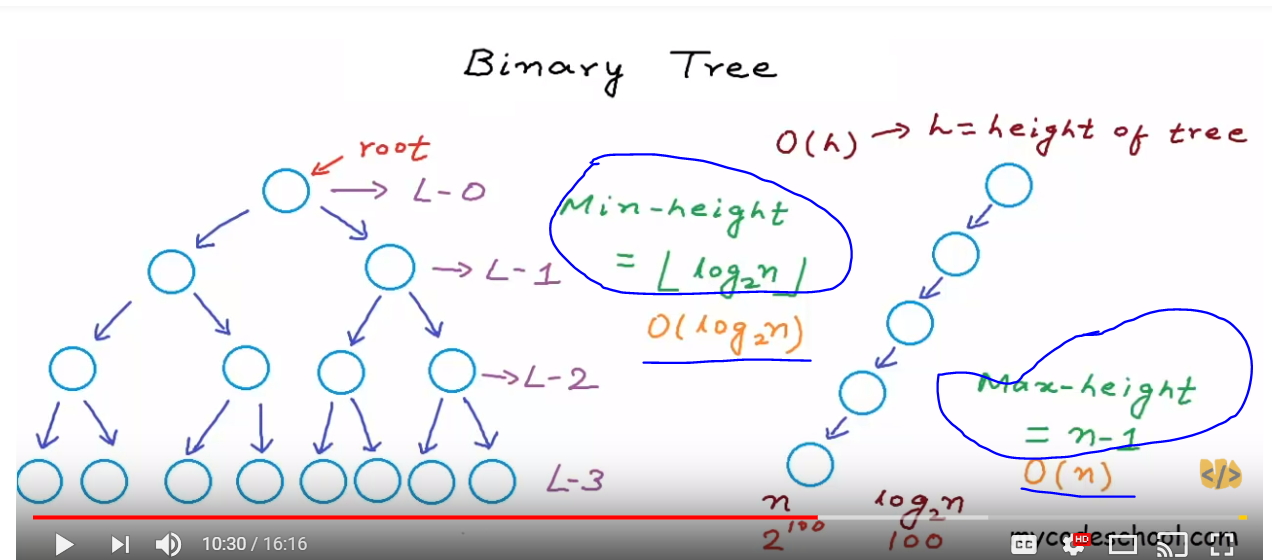 Binary Tree
root
L-0
L-1
L-2
L-3
Min-height
= ⌊ log₂n ⌋
O(log₂n)
O(h) → h = height of tree
Max-height
= n-1
O(n)
n log₂n
2¹⁰⁰ 100
</>
mycodeschool.com
10:30 / 16:16
CC
HD